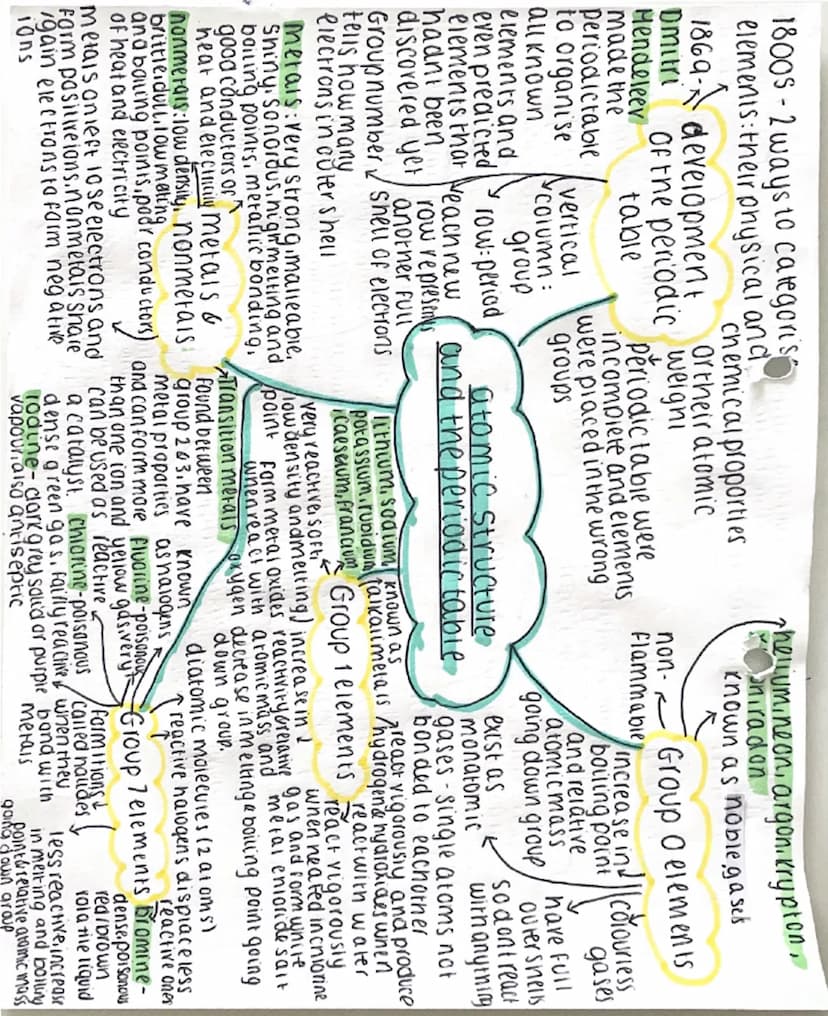 atomic structure
and the periodic table
development
of the periodic
table
1800s - 2 ways to categoris
elements: their physical and
chemical properties
or their atomic
weight
1869 -
Dmitri
Mendeleev
made the
periodic table
to organise
all known
elements and
even predicted
elements that
hadnt been
discovered yet
Group number
tells how many
electrons in outer shell
vertical
column:
group
row: period
each new
row represents
another full
shell of electrons
periodic table were
incomplete and elements
were placed in the wrong
groups
metals &
nonmetals
metals: very strong, malleable,
shiny sonorous, high melting and
boiling points, metallic bonding,
good conductors of
heat and electricity
nonmetals: low density
brittle, dull, low melting
and boiling points, poor conductors
of heat and electricity
metals on left lose electrons and
form positive ions, nonmetals share
/gain electrons to form negative
ions
Transition metals
found between
group 2 & 3, have
metal propoties
and can form more
than one ion and
can be used as
a catalyst.
Group 1 elements
lithium, sodium,
potassium, rubidium
caesium, francium
known as
alkali metals
very reactive, soft
low density and melting
point
form metal oxides
when react with
oxygen
increase in
reactivity & relative
atomic mass and
decrease in melting & boiling point going
down group.
react vigorously and produce
hydrogen & hydroxides when
react with water
react vigorously
when heated in chlorine
gas and form white
metal chloride salt
Group 0 elements
helium, neon, argon, krypton,
radon
known as noble gases
non-
flammable
increase in
boiling point
and relative
atomic mass
going down group
colourless
gases
have full
outer shells
so dont react
with anything
exist as
monatomic
gases - single atoms not
bonded to eachother
Group 7 elements
known
as halogens
diatomic molecules (2 atoms)
reactive halogens displace less
reactive ones
fluorine - poisonous
yellow gas, very
reactive
chlorine - poisonous
dense green gas, fairly reactive
iodine - dark grey solid or purple
vapour. also antiseptic
form 1- ions
called halides
when they
bond with
metals
bromine -
dense poisonous
red/brown
volatile liquid
less reactive, increase
in melting and boiling
point & relative atomic mass
going down group